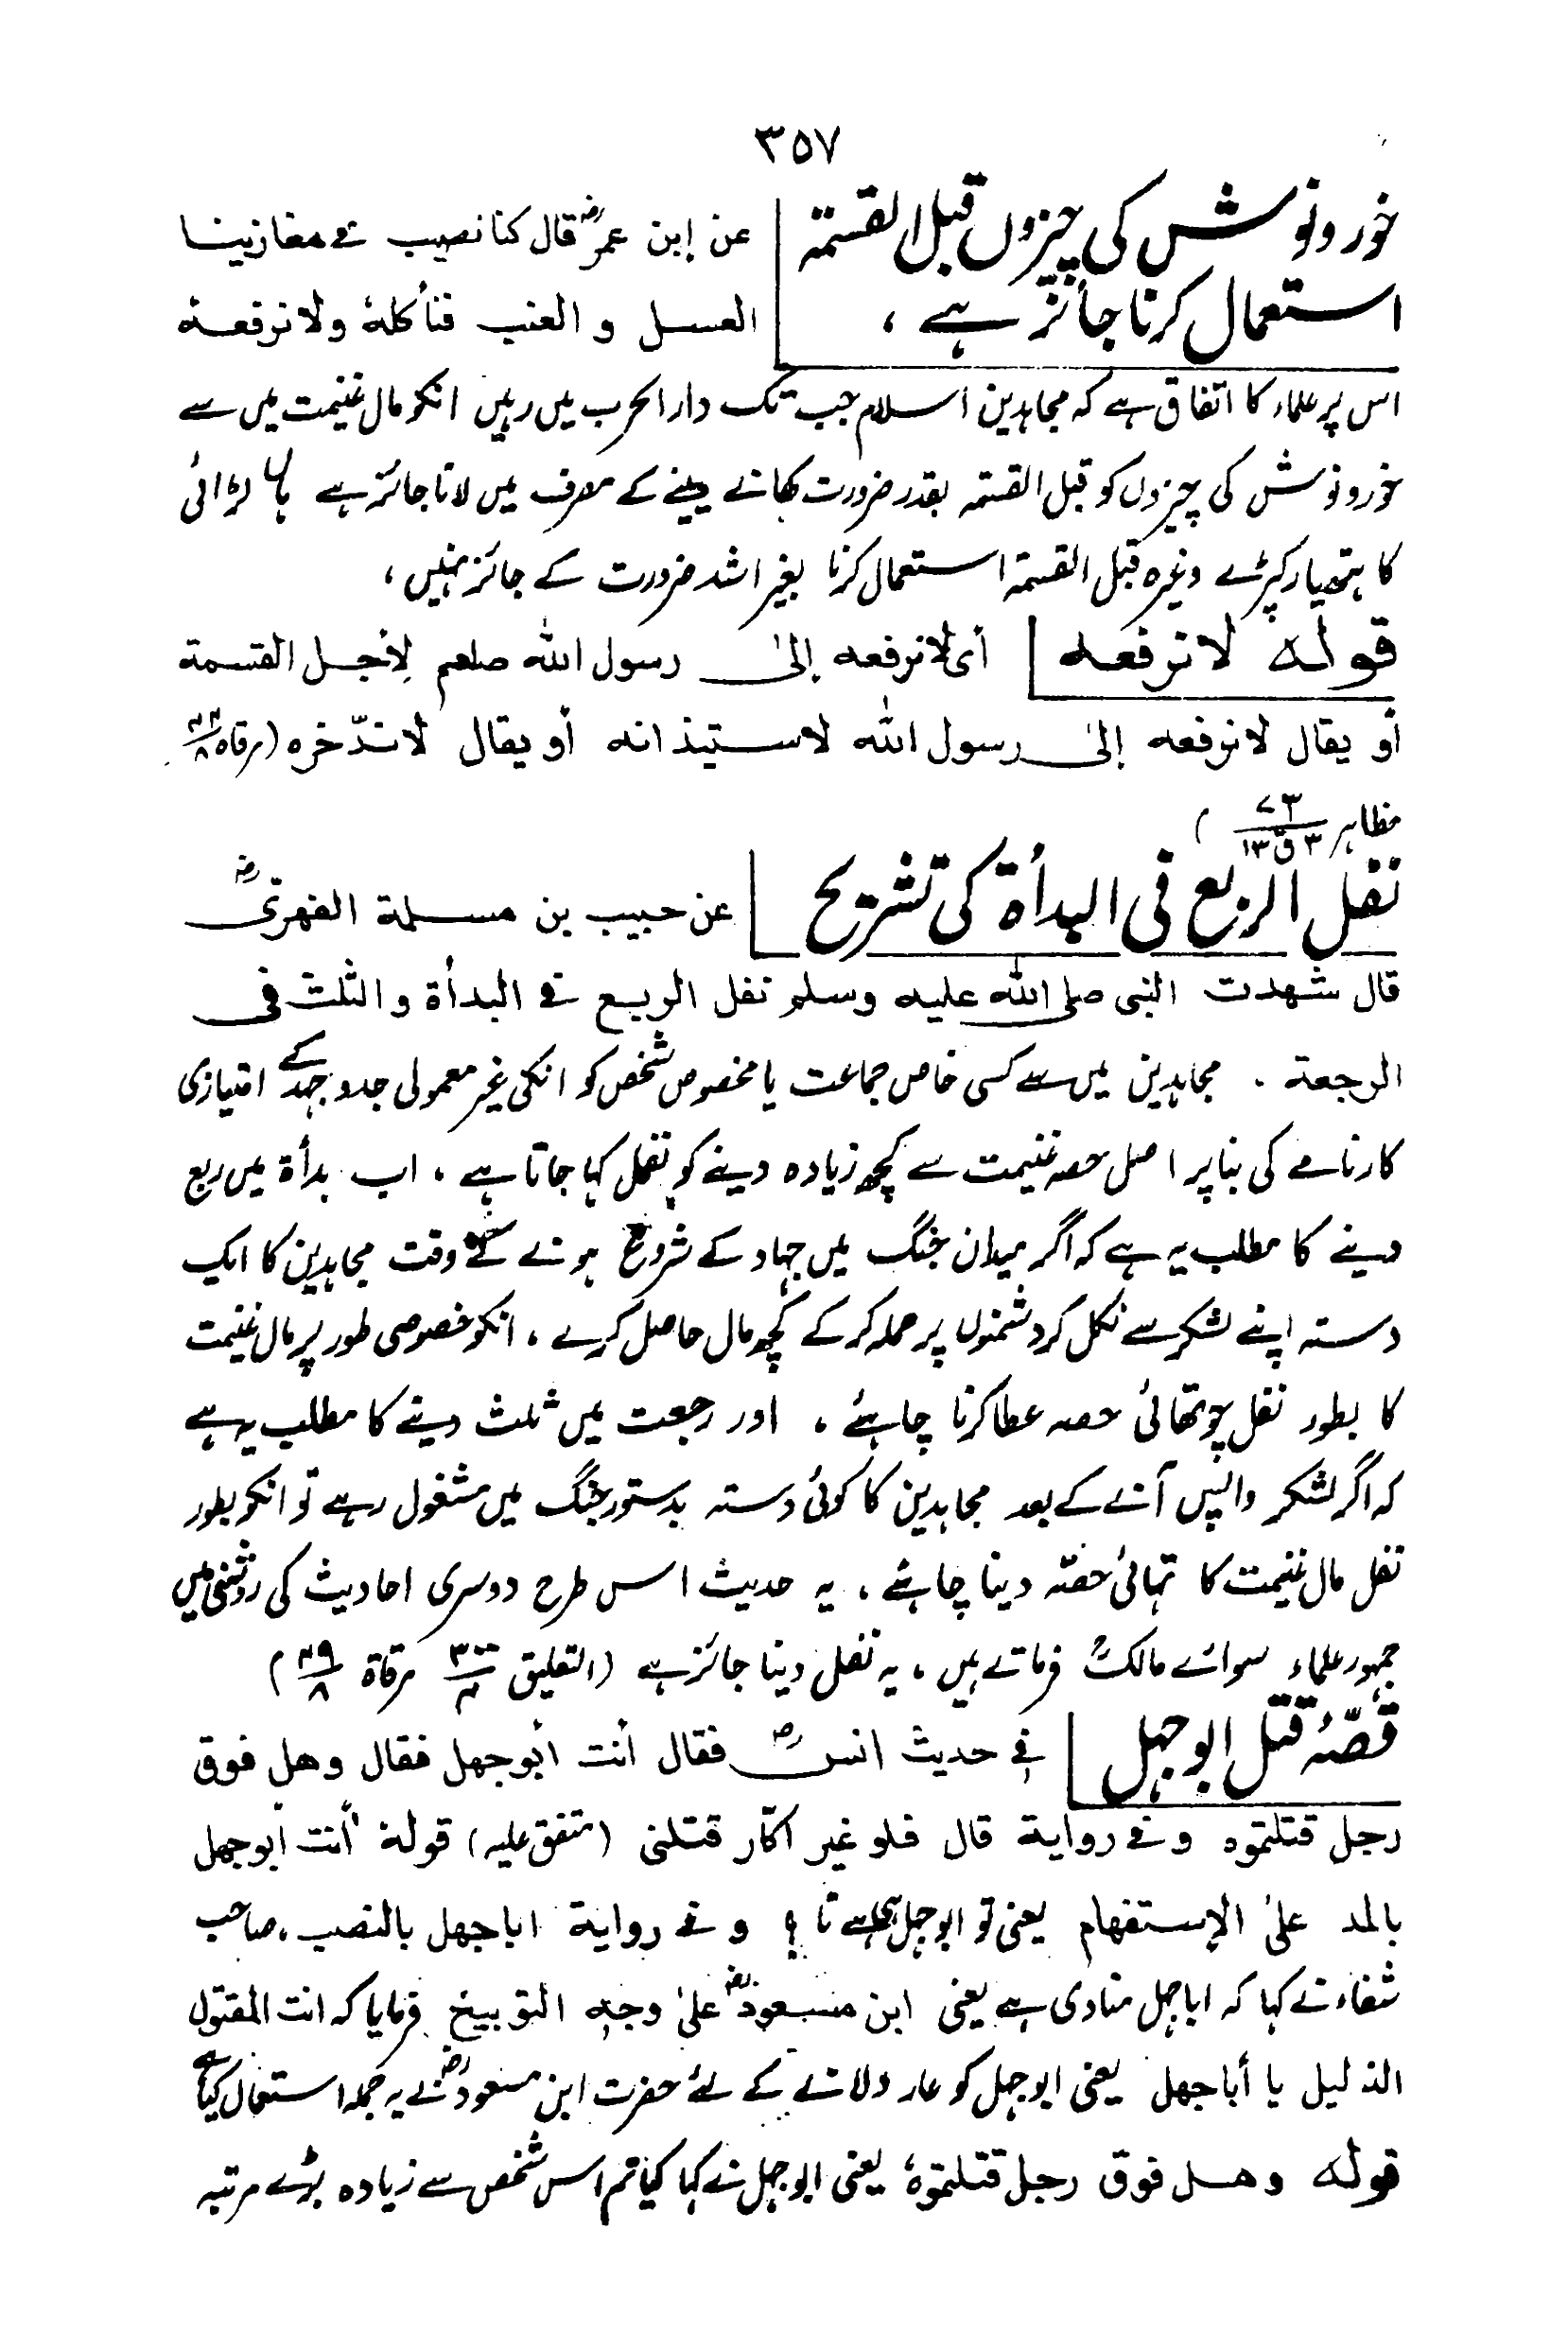 ۳۵۷
خور و نوش کی چیزوں قبل القسمۃ
استعمال کرنا جائز ہے ،
عن إبن عمرؓ قال كنا نصيب فى مغازينا
العسل و العنب فنأكلهٗ ولا نرفعهٗ
اس پر علماء کا اتفاق ہے کہ مجاہدین اسلام جب تک دار الحرب میں رہیں انکو مال غنیمت میں سے
خورونوش کی چیزوں کو قبل القسمۃ بقدر ضرورت کھانے پینے کے مصرف میں لانا جائز ہے ہاں لڑائی
کا ہتھیار کپڑے وغیرہ قبل القسمۃ استعمال کرنا بغیر اشد ضرورت کے جائز نہیں ،
قوله لا نرفعه
أى لا نرفعه إلىٰ رسول الله صلعم لِأجل القسمة
أو يقال لا نرفعه إلىٰ رسول الله لاستيذانه أو يقال لا ندّخره (مرقاه
مظاہر ۷۳/۳ ق ۱۳ )
نفل الربع فی البدأة کی تشریح
عن حبيب بن مسلمة الفهرىؓ
قال شهدت النبى صلى الله عليه وسلم نفل الربع فى البدأة والثلث فى
الرجعة ۔ مجاہدین میں سے کسی خاص جماعت یا مخصوص شخص کو انکی غیر معمولی جدوجہد کے امتیازی
کارنامے کی بنا پر اصل حصہ غنیمت سے کچھ زیادہ دینے کو نفل کہا جاتا ہے ، اب بدأة میں ربع
دینے کا مطلب یہ ہے کہ اگر میدان جنگ میں جہاد کے شروع ہونے کے وقت مجاہدین کا ایک
دستہ اپنے لشکر سے نکل کر دشمنوں پر حملہ کرکے کچھ مال حاصل کرے ، انکو خصوصی طور پر مال غنیمت
کا بطور نفل چوتھائی حصہ عطا کرنا چاہئے ، اور رجعت میں ثلث دینے کا مطلب یہ ہے
کہ اگر لشکر واپس آنے کے بعد مجاہدین کا کوئی دستہ بدستور جنگ میں مشغول رہے تو انکو بطور
نفل مال غنیمت کا تہائی حصّہ دینا چاہئے ، یہ حدیث اس طرح دوسری احادیث کی روشنی میں
جمہور علماء سوائے مالکؒ فرماتے ہیں ، یہ نفل دینا جائز ہے (التعلیق مرقاة ۳۹/۸ )
قصّۂ قتل ابو جہل
فى حديث انسؓ فقال أنت أبو جهل فقال وهل فوق
رجل قتلتموه وفى رواية قال فلو غير اكّار قتلنى (متفق عليه) قولهٗ أنت أبو جهل
بالمد علىٰ الإستفهام یعنی تو ابو جہل ہی ہے نا ؟ و فى رواية ابا جهل بالنصب ، صاحب
شفاء نے کہا کہ ابا جہل منادی ہے یعنی ابن مسعودؓ علیٰ وجہ التوبیخ فرمایا کہ انت المقتول
الذليل يا أبا جهل یعنی ابو جہل کو عار دلانے کے لئے حضرت ابن مسعودؓ نے یہ جملہ استعمال کیا ہے
قوله وهل فوق رجل قتلتموهٗ یعنی ابو جہل نے کہا کیا تم اس شخص سے زیادہ بڑے مرتبہ